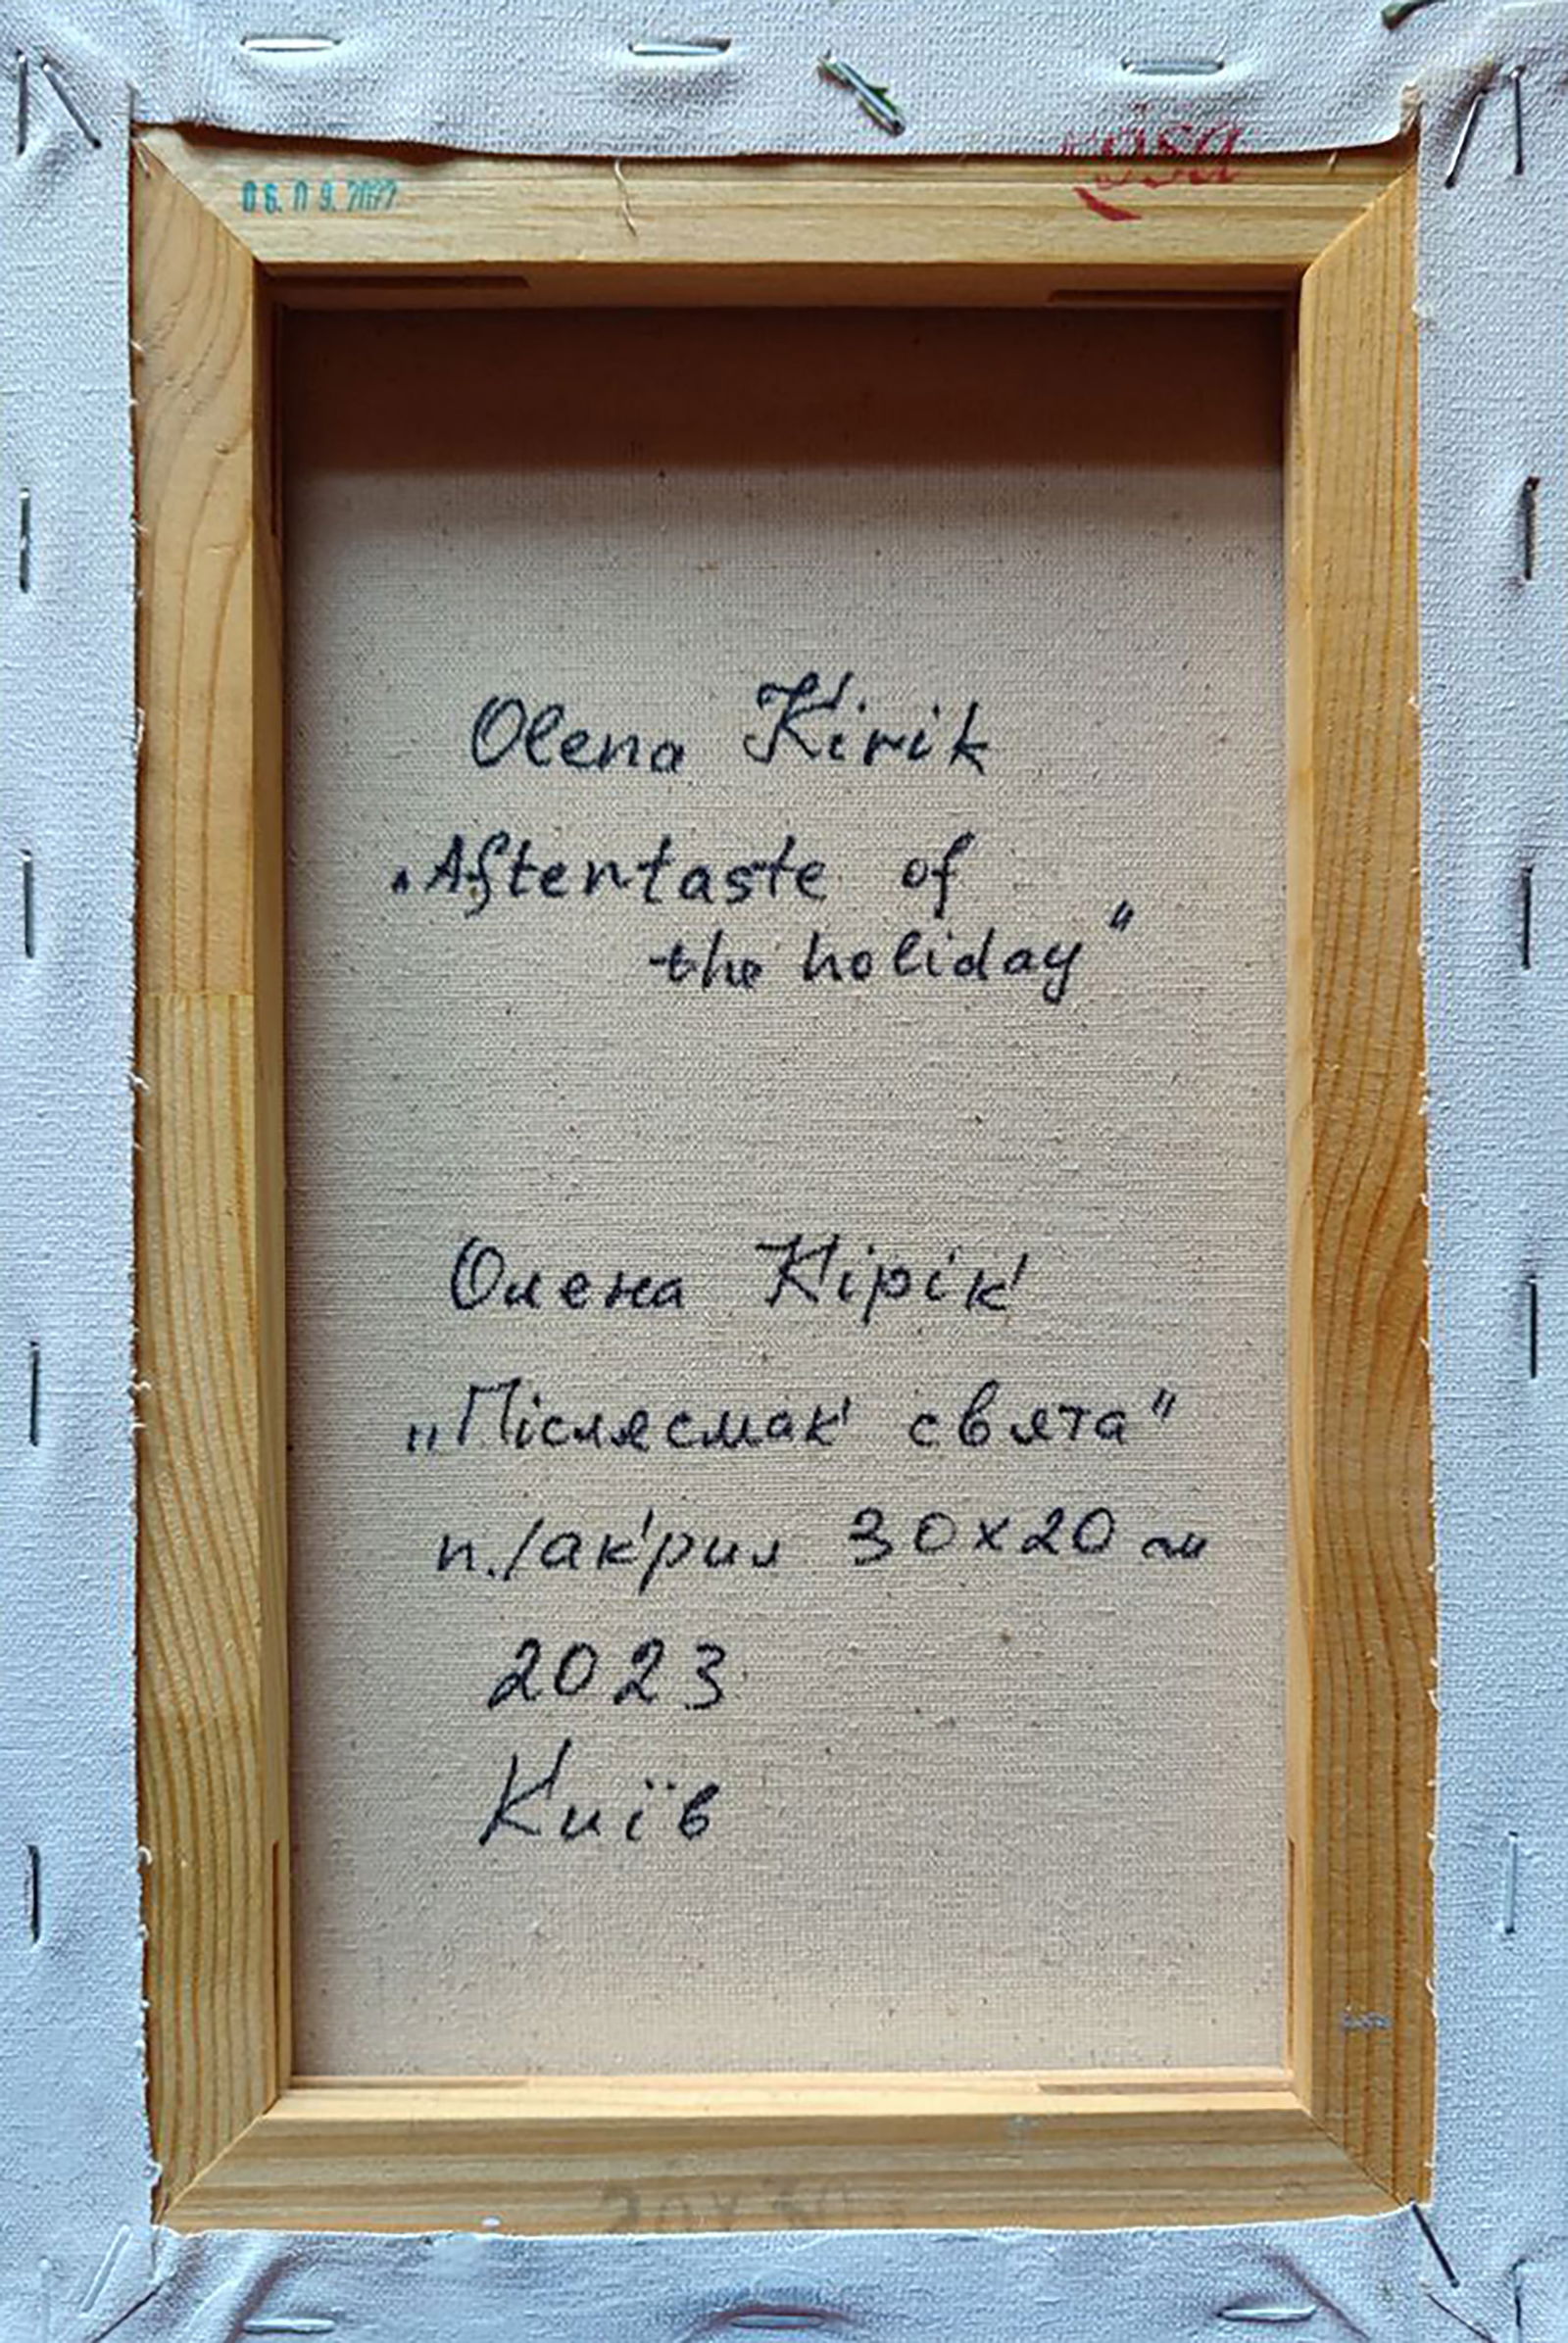 06.09.2022
Olena Kirik
"Aftertaste of
the holiday"
Олена Кірік
„Післясмак свята"
п./акрил 30х20 см
2023
Київ
20х30